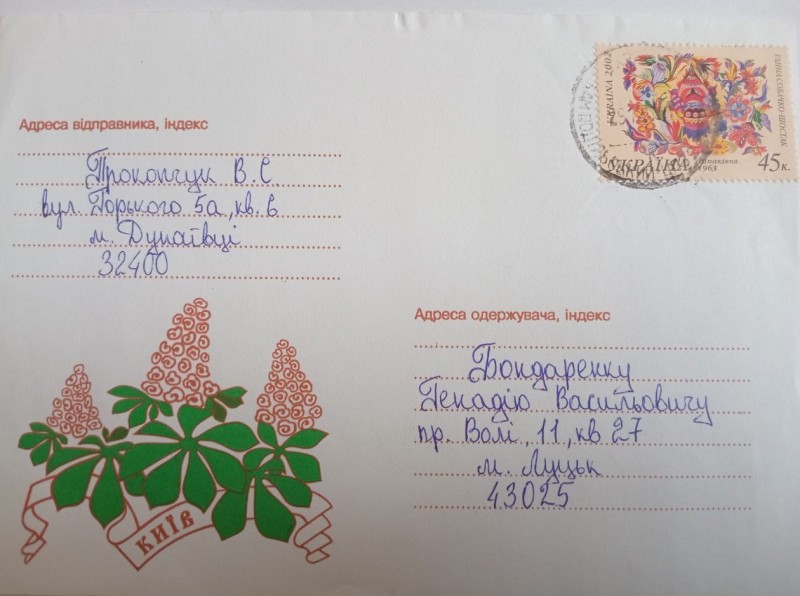 Адреса відправника, індекс
Прокопчук В.Є
вул. Горького 5а, кв. 6
м. Дунаївці
32400
UKRAINA 2002
ГАННА СОБАЧКО-ШОСТАК
УКРАЇНА
1963
45к.
Адреса одержувача, індекс
Бондаренку
Генадію Васильовичу
пр. Волі, 11, кв 27
м. Луцьк
43025
КИЇВ